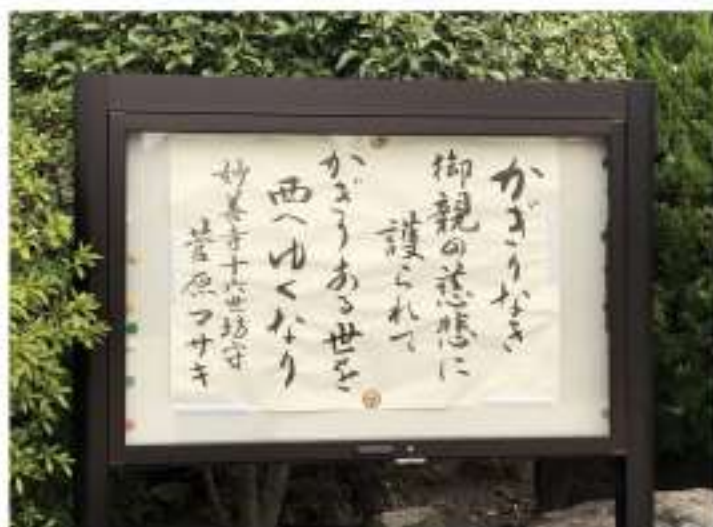 かぎりなき
御親の慈悲に
護られて
かぎりある世を
西へゆくなり
妙善寺十六世坊守
菅原マサキ